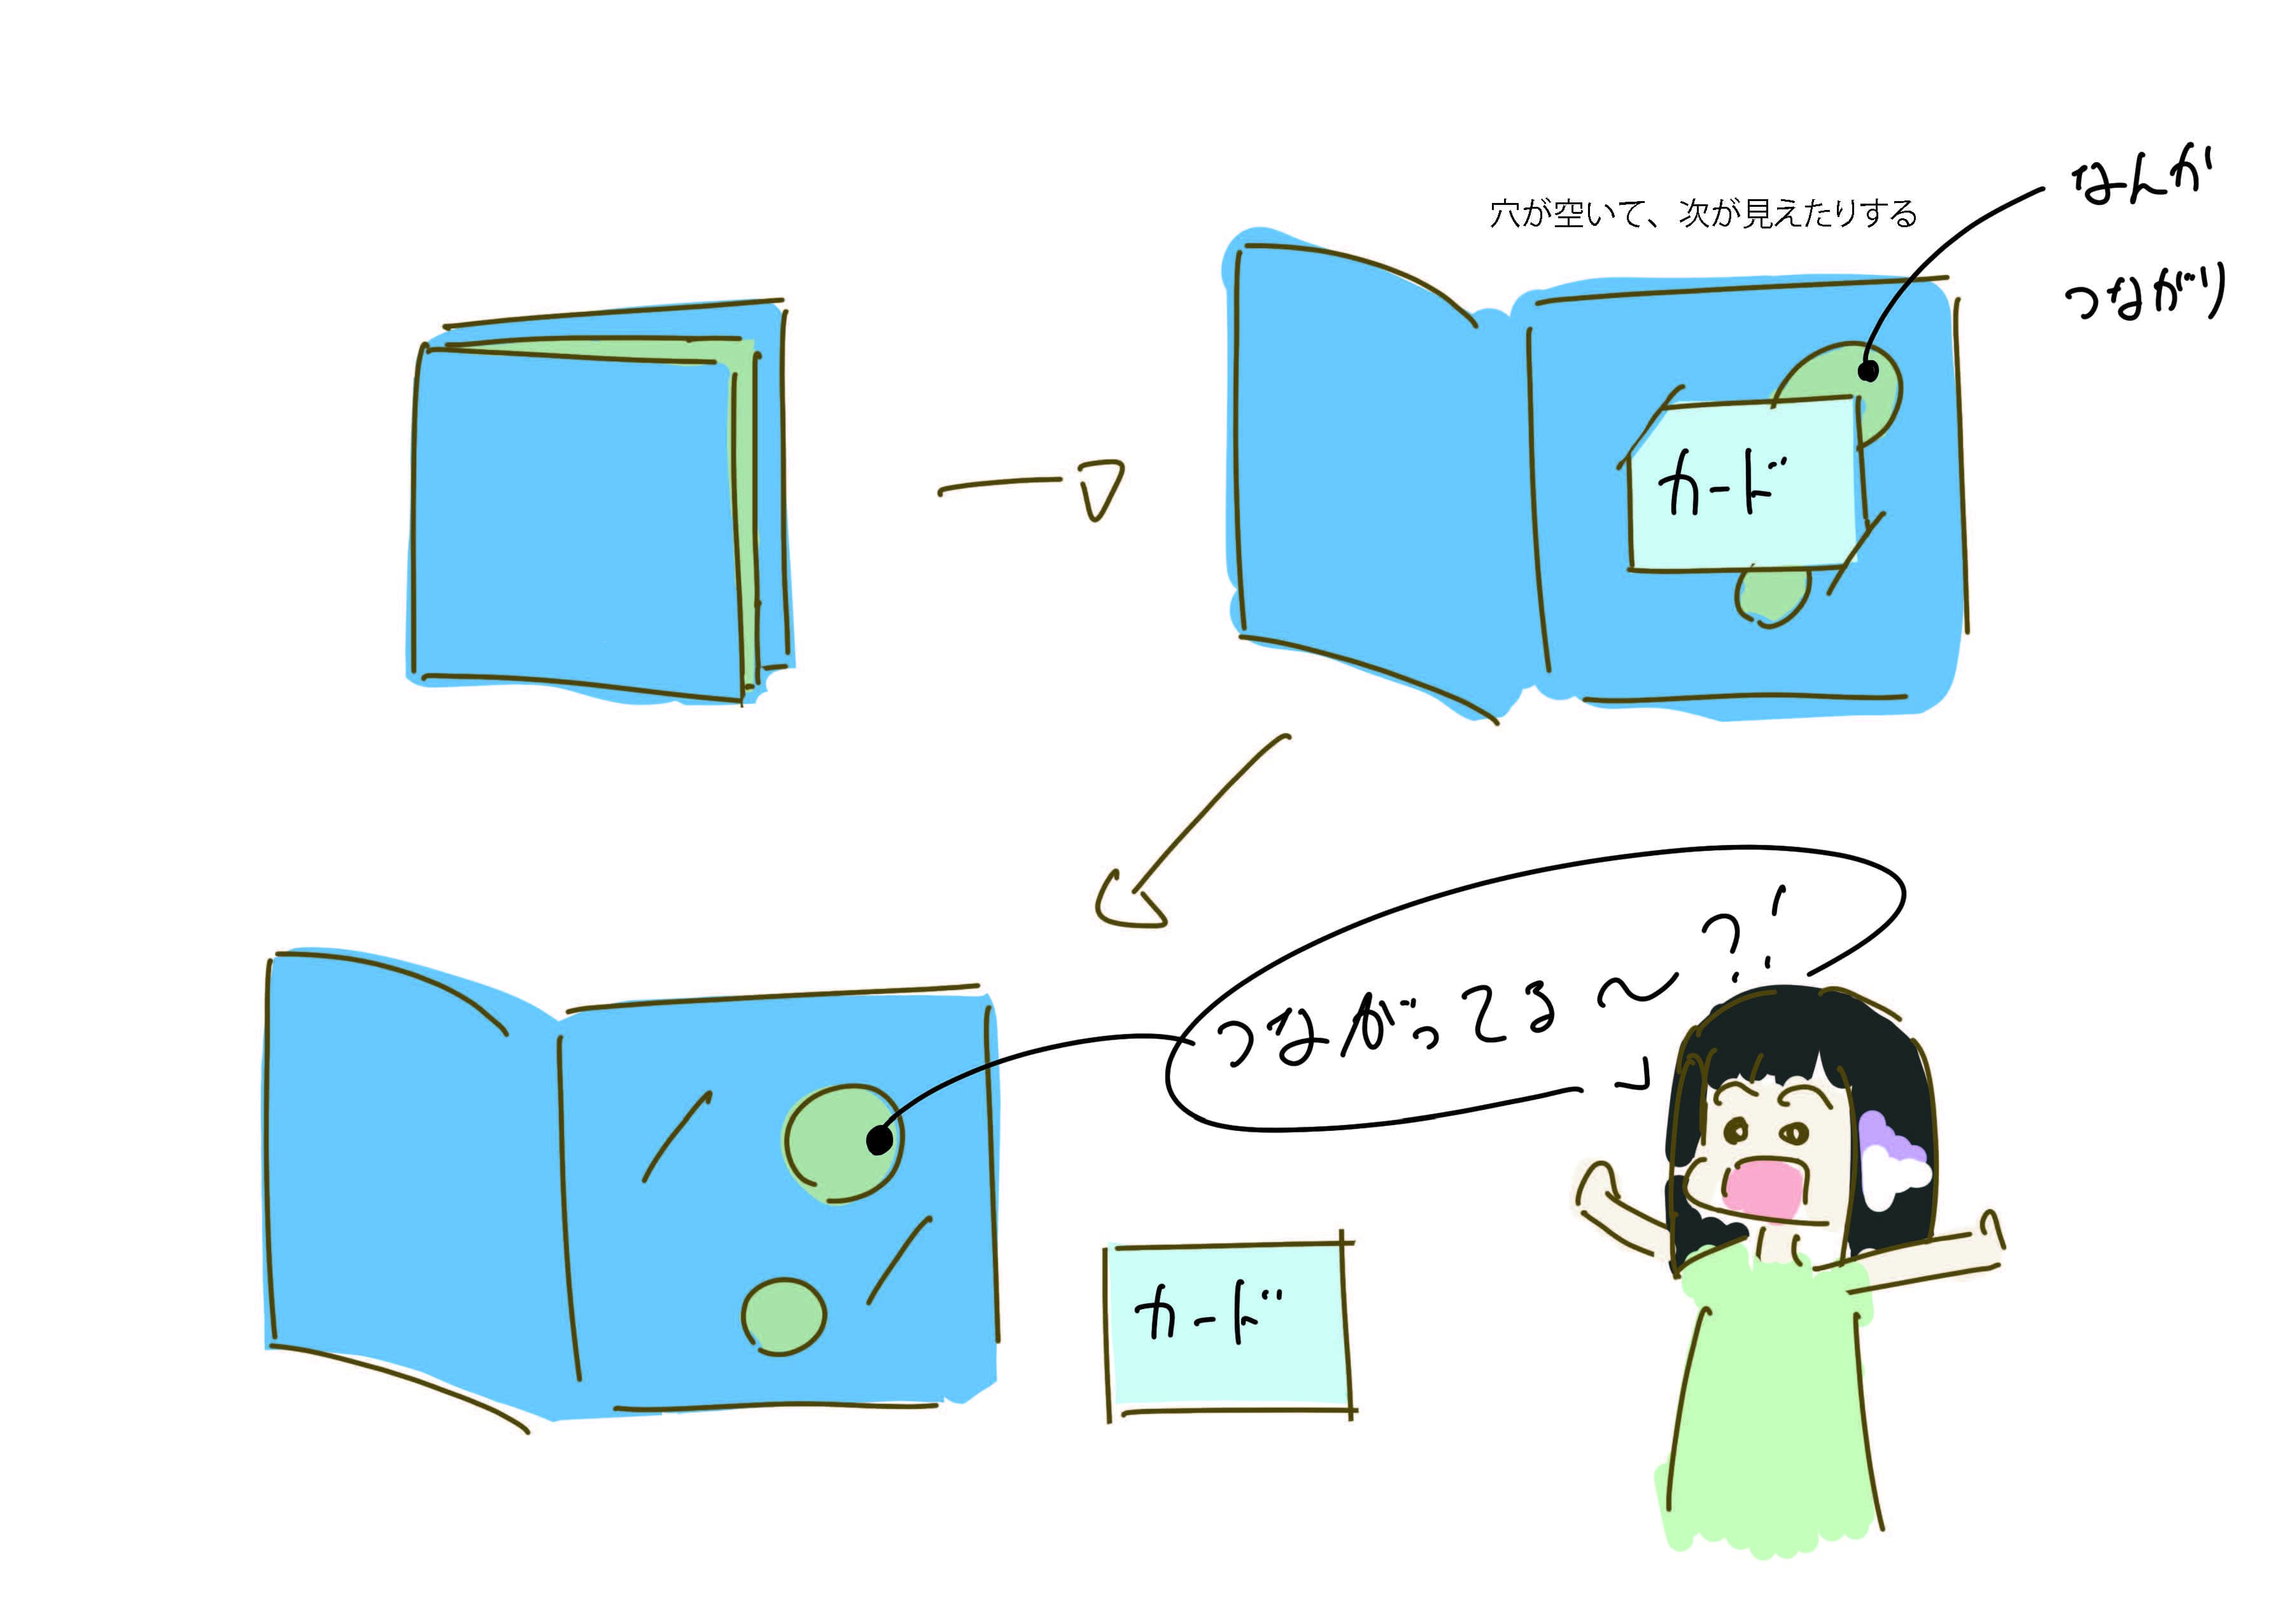 穴が空いて、次が見えたりする
なんか
つながり
カード
つながってる〜?!
カード